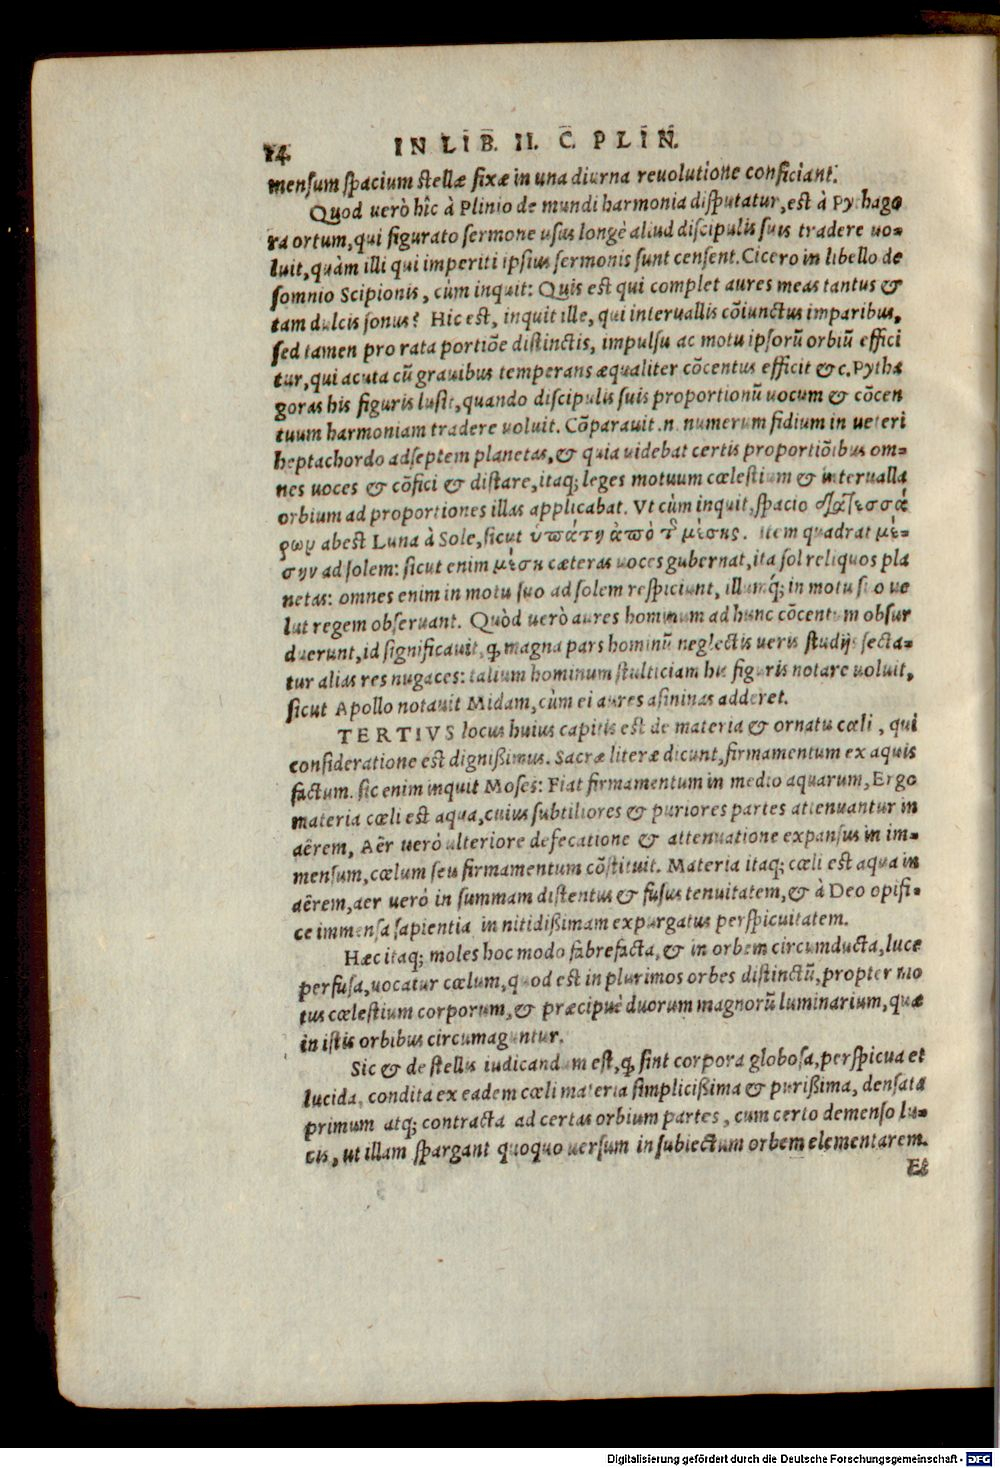 14.
IN LIB. II. C. PLIN.
mensum spacium stellæ fixæ in una diurna reuolutione conficiant.
Quod uerò hîc à Plinio de mundi harmonia disputatur, est à Pythago
ra ortum, qui figurato sermone usus longè aliud discipulis suis tradere uo-
luit, quàm illi qui imperiti ipsius sermonis sunt censent. Cicero in libello de
somnio Scipionis, cùm inquit: Quis est qui complet aures meas tantus &
tam dulcis sonus? Hic est, inquit ille, qui interuallis cõiunctus imparibus,
sed tamen pro rata portiõe distinctis, impulsu ac motu ipsorũ orbiũ effici
tur, qui acuta cũ grauibus temperans æqualiter cõcentus efficit &c. Pytha
goras his figuris lusit, quando discipulis suis proportionũ uocum & cõcen
tuum harmoniam tradere uoluit. Cõparauit .n. numerum fidium in ueteri
heptachordo ad septem planetas, & quia uidebat certis proportiõibus om-
nes uoces & cõfici & distare, itaq; leges motuum cœlestium & interualla
orbium ad proportiones illas applicabat. Vt cùm inquit, spacio διὰ τεσσά
ρων abest Luna à Sole, sicut ὑπάτη ἀπὸ τῆς μέσης. Item quadrat μέ-
σην ad solem: sicut enim μέση cæteras uoces gubernat, ita sol reliquos pla
netas: omnes enim in motu suo ad solem respiciunt, illumq́; in motu suo ue
lut regem obseruant. Quòd uerò aures hominum ad hunc cõcentum obsur
duerunt, id significauit, ꝙ magna pars hominũ neglectis ueris studijs secta-
tur alias res nugaces: talium hominum stulticiam his figuris notare uoluit,
sicut Apollo notauit Midam, cùm ei aures asininas adderet.
TERTIVS locus huius capitis est de materia & ornatu cœli, qui
consideratione est dignißimus. Sacræ literæ dicunt, firmamentum ex aquis
factum. sic enim inquit Moses: Fiat firmamentum in medio aquarum, Ergo
materia cœli est aqua, cuius subtiliores & puriores partes attenuantur in
aërem, Aër uerò ulteriore defecatione & attenuatione expansus in im-
mensum, cœlum seu firmamentum cõstituit. Materia itaq; cœli est aqua in
aërem, aer uerò in summam distentus & fusus tenuitatem, & à Deo opifi-
ce immensa sapientia in nitidißimam expurgatus perspicuitatem.
Hæc itaq; moles hoc modo fabrefacta, & in orbem circumducta, luce
perfusa, uocatur cœlum, quod est in plurimos orbes distinctũ, propter mo
tus cœlestium corporum, & præcipuè duorum magnorũ luminarium, quæ
in istis orbibus circumaguntur.
Sic & de stellis iudicandum est, ꝙ sint corpora globosa, perspicua et
lucida, condita ex eadem cœli materia simplicißima & purißima, densata
primum atq; contracta ad certas orbium partes, cum certo demenso lu-
cis, ut illam spargant quoquo uersum in subiectum orbem elementarem.
Et
Digitalisierung gefördert durch die Deutsche Forschungsgemeinschaft - DFG